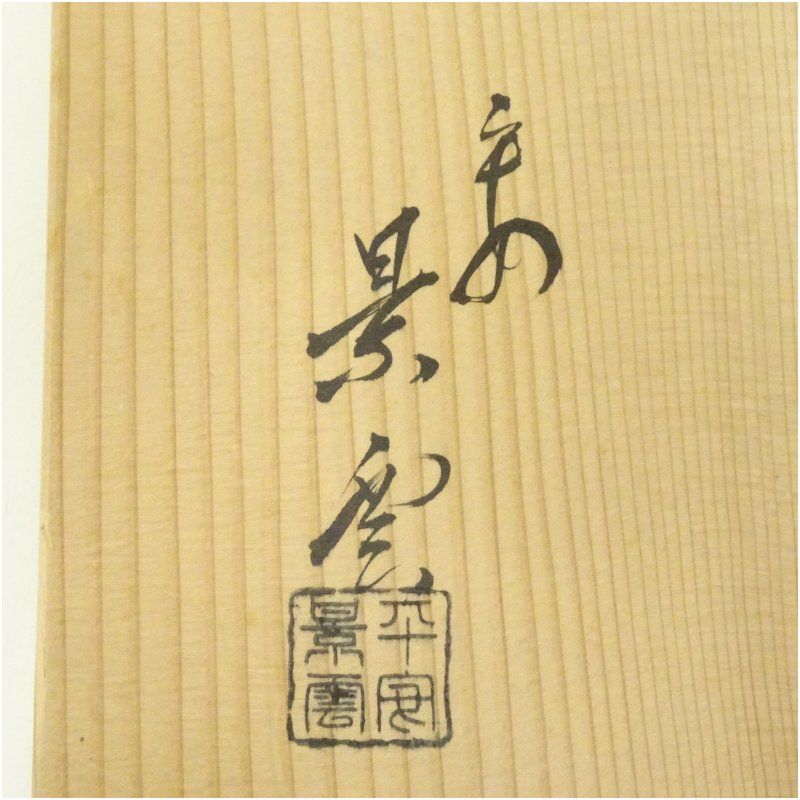 平安
景雲
平安
景雲